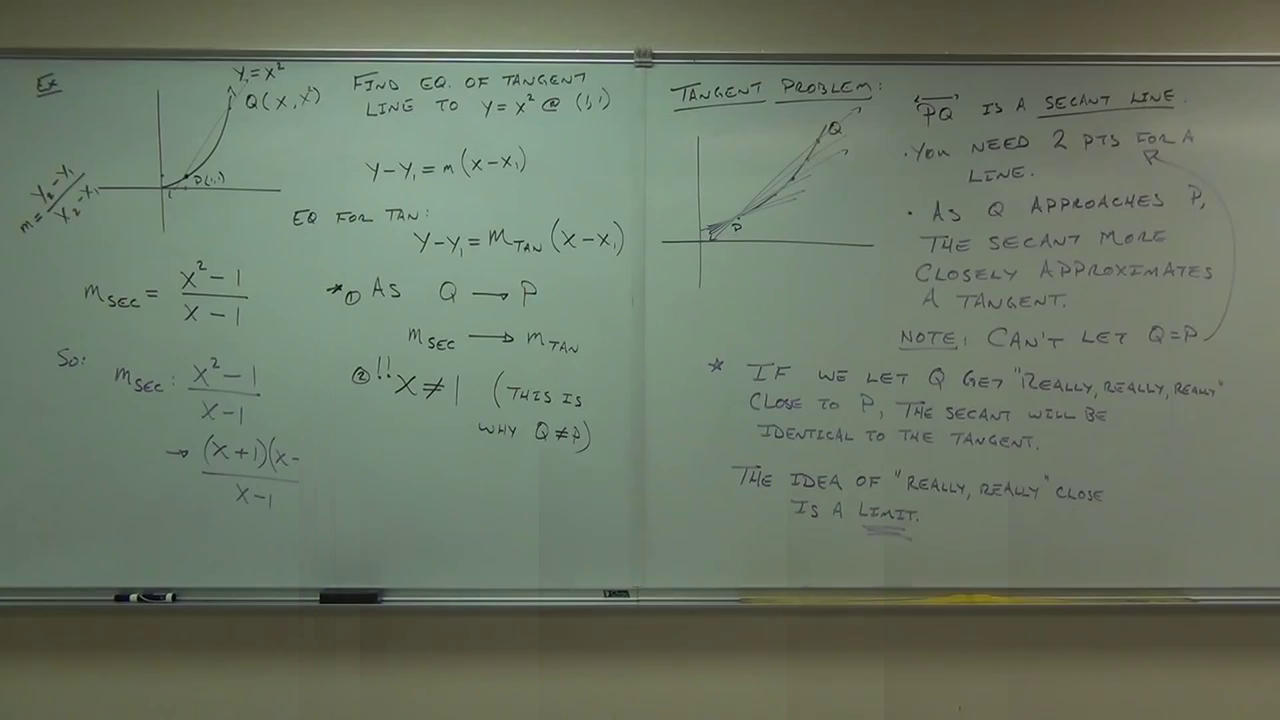 Ex
y = x²
Q(x, x²)
P(1,1)
m = y₂-y₁ / x₂-x₁
FIND EQ. OF TANGENT
LINE TO y = x² @ (1,1)
y-y₁ = m(x-x₁)
EQ FOR TAN:
y-y₁ = m_TAN (x-x₁)
m_SEC = x²-1 / x-1
So:
m_SEC : x²-1 / x-1
→ (x+1)(x- / x-1
* ① AS Q → P
m_SEC → m_TAN
② !! x ≠ 1 (THIS IS
WHY Q ≠ P)
TANGENT PROBLEM:
Q
P
PQ IS A SECANT LINE.
· YOU NEED 2 PTS FOR A
LINE.
· AS Q APPROACHES P,
THE SECANT MORE
CLOSELY APPROXIMATES
A TANGENT.
NOTE: CAN'T LET Q=P
* IF WE LET Q GET "REALLY, REALLY, REALLY"
CLOSE TO P, THE SECANT WILL BE
IDENTICAL TO THE TANGENT.
THE IDEA OF "REALLY, REALLY" CLOSE
IS A LIMIT.